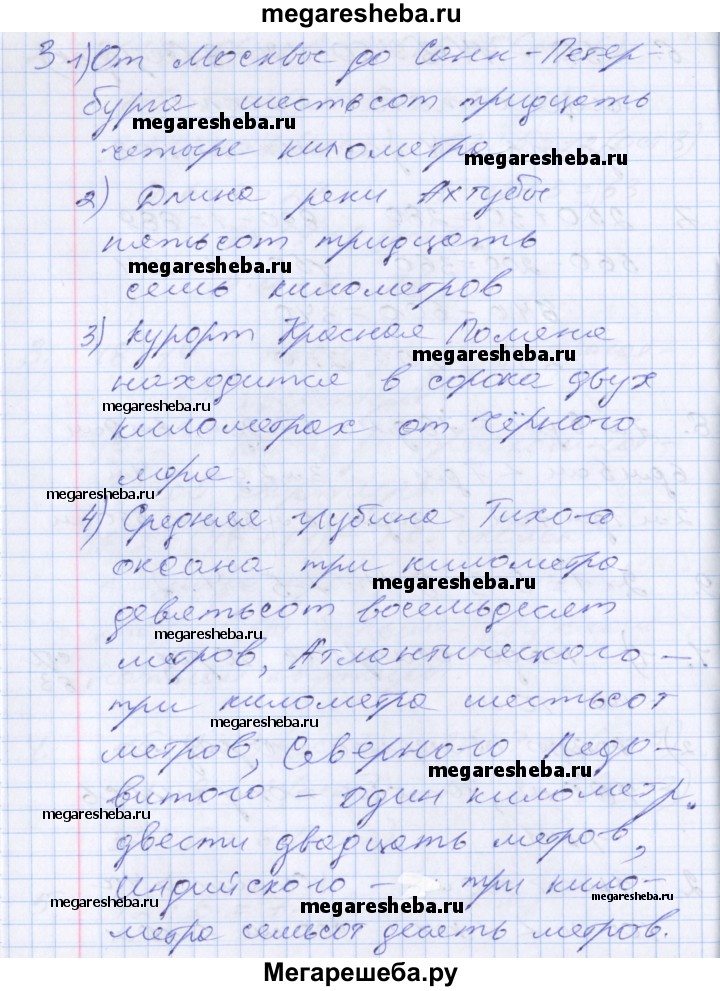 megaresheba.ru
3 1) От Москвы до Санк-Петер-
бурга шестьсот тридцать
megaresheba.ru
четыре километра
megaresheba.ru
2) Длина реки Ахтубы
пятьсот тридцать
megaresheba.ru
семь километров
3) Курорт Красная Поляна
megaresheba.ru
находится в сорока двух
megaresheba.ru
километрах от Чёрного
моря.
megaresheba.ru
4) Средняя глубина Тихого
океана три километра
megaresheba.ru
девятьсот восемьдесят
megaresheba.ru
метров, Атлантического –
три километра шестьсот
megaresheba.ru
метров, Северного Ледо-
megaresheba.ru
витого – один километр
megaresheba.ru
двести двадцать метров,
Индийского – три кило-
megaresheba.ru
megaresheba.ru
метра семьсот десять метров.
Мегарешеба.ру